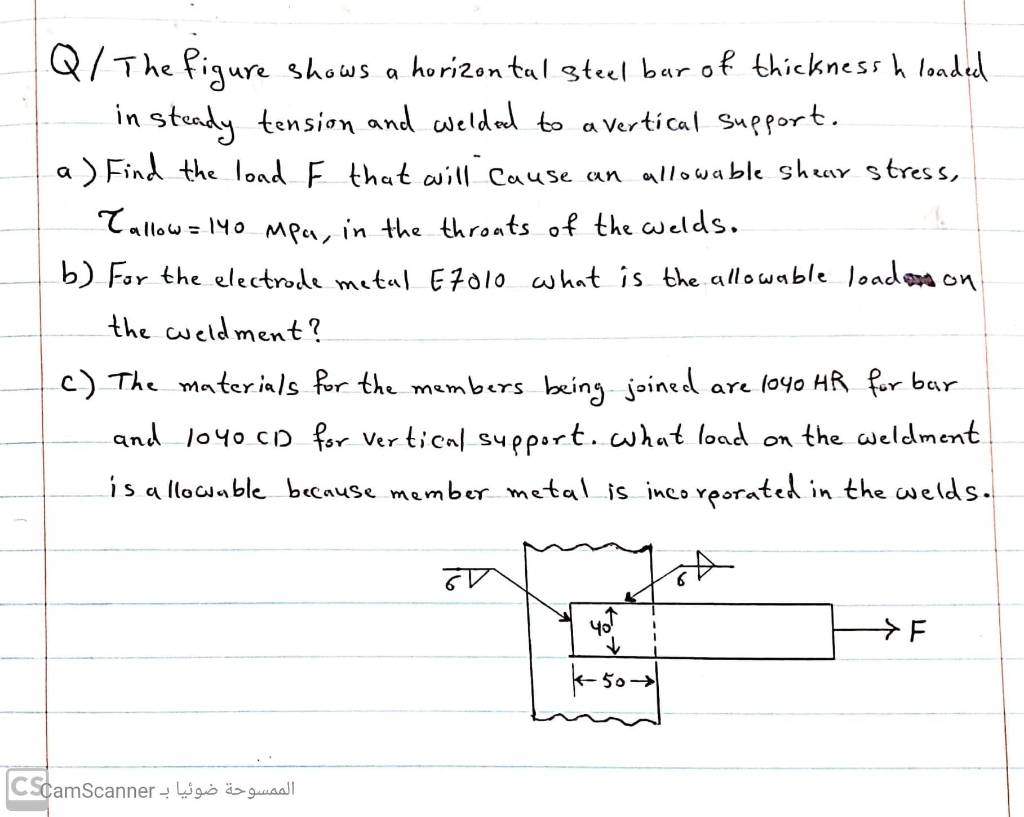 Q/ The figure shows a horizontal steel bar of thickness h loaded
in steady tension and welded to a vertical support.
a) Find the load F that will cause an allowable shear stress,
τallow = 140 MPa, in the throats of the welds.
b) For the electrode metal E7010 what is the allowable load on
the weldment?
c) The materials for the members being joined are 1040 HR for bar
and 1040 CD for vertical support. what load on the weldment
is allowable because member metal is incorporated in the welds.
6
6
40
F
50
CS CamScanner الممسوحة ضوئيا بـ